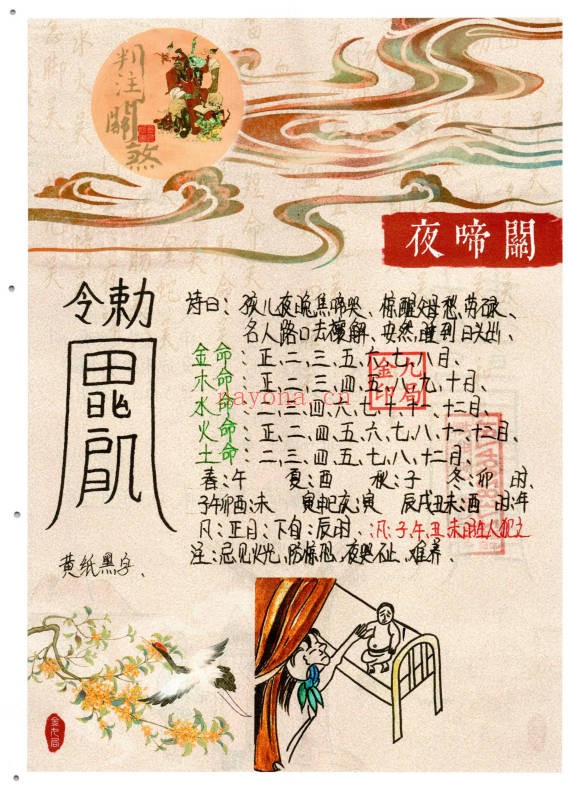 判注關煞
夜啼關
敕令
诗曰：孩儿夜晚焦啼哭、惊醒父母愁劳碌、
名人路口去禳解、安然睡到日头出、
金命：正、二、三、五、六、七、八月、
木命：正、二、三、四、五、八、九、十月、
水命：二、三、四、六、七、十、十一、十二月、
火命：正、二、四、五、六、七、八、十一、十二月、
土命：二、三、四、五、七、八、十二月、
春：午 夏：酉 秋：子 冬：卯 时、
子午卯酉：未 寅申巳亥：寅 辰戌丑未：酉 时年
凡：正月：下旬：辰时、凡：子、午、丑、未时生人犯之
注：忌见火光、防惊恐、夜哭不止、难养、
黄纸黑字、
nayona.cn
金九局印
金九局